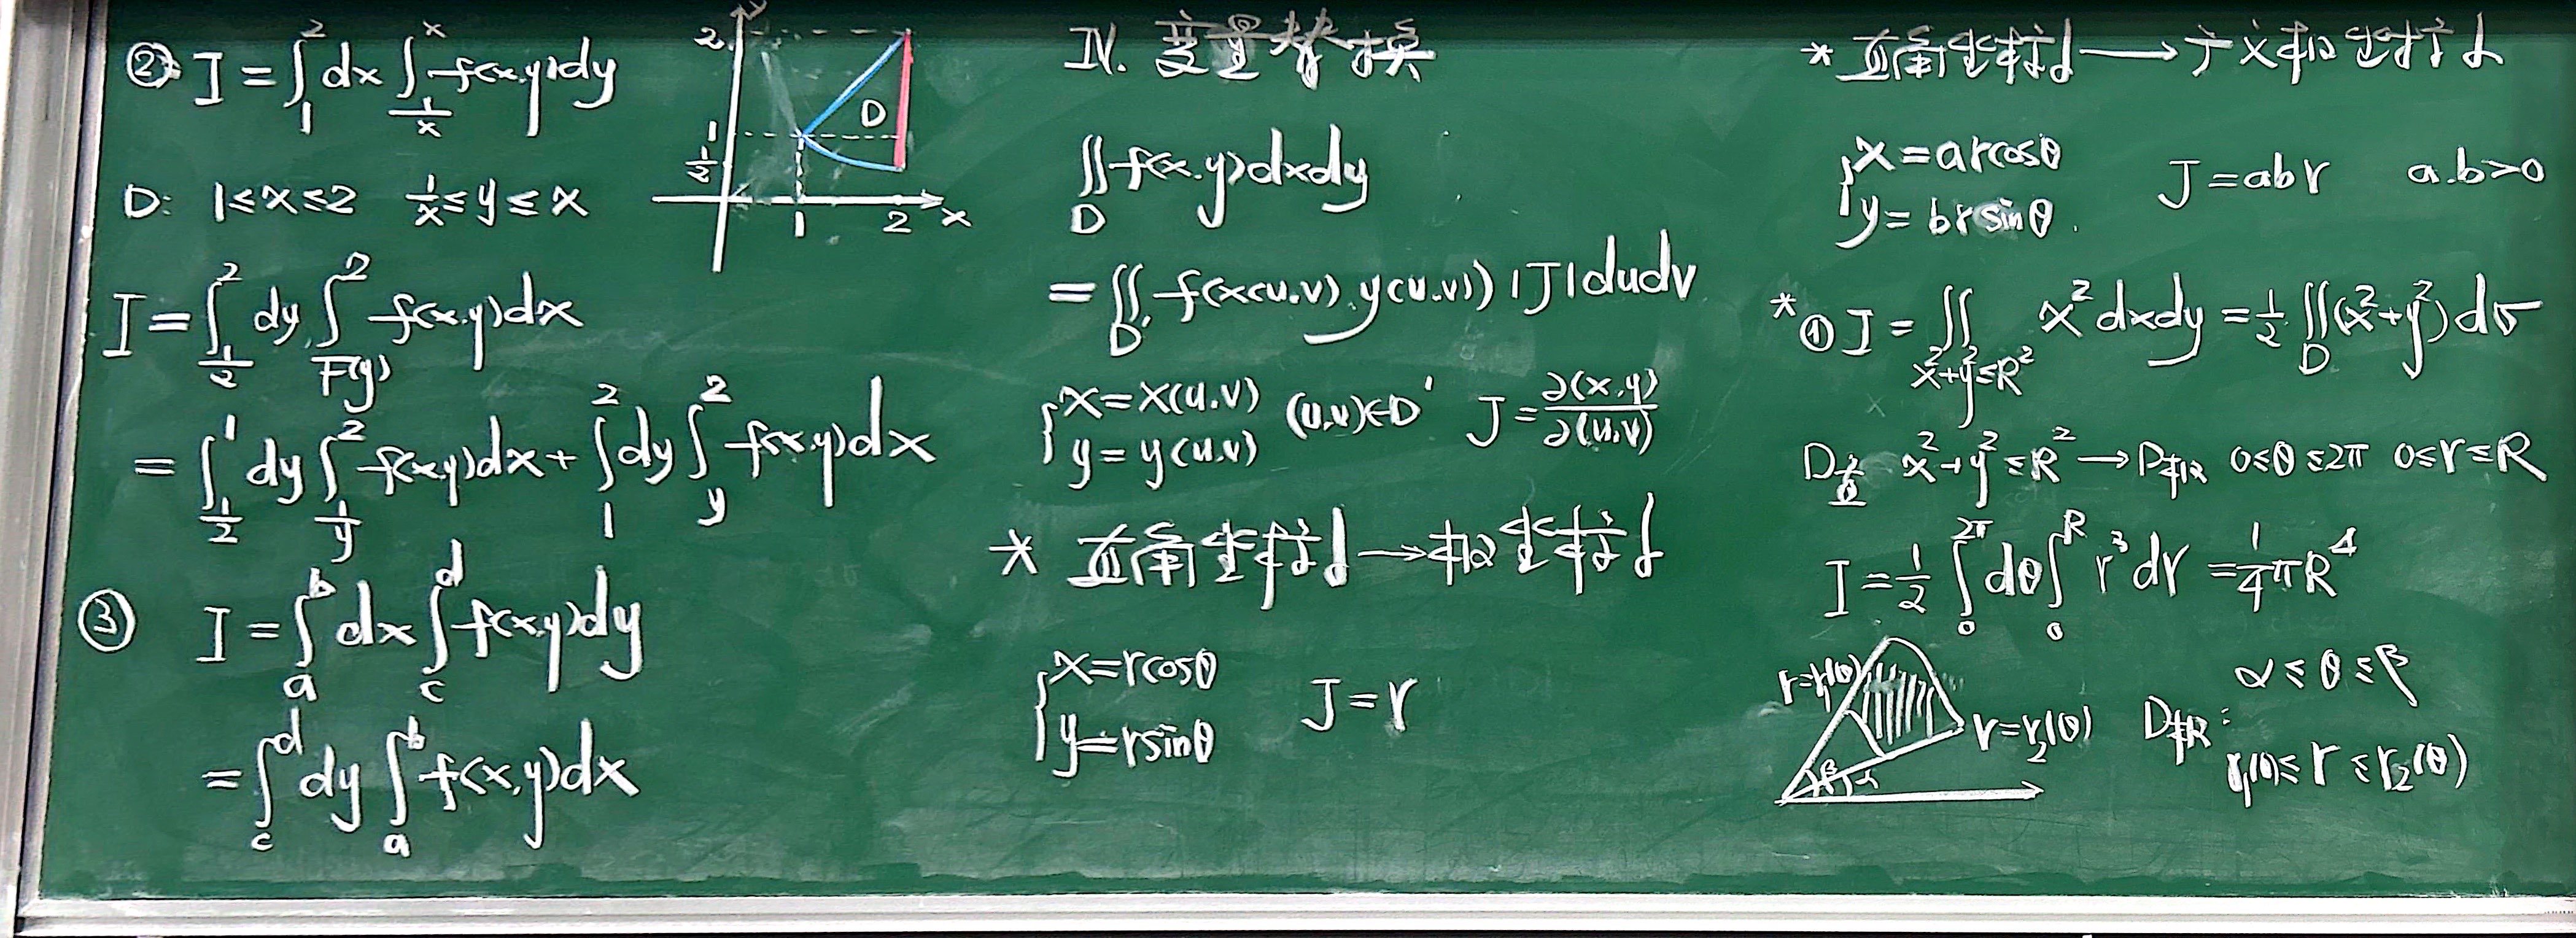 ② I = ∫₁² dx ∫_{1/x}^{x} f(x,y)dy
D: 1≤x≤2 1/x ≤ y ≤ x
y
2
1
1/2
D
1 2 x
I = ∫_{1/2}^{2} dy ∫_{F(y)}^{2} f(x,y)dx
= ∫_{1/2}^{1} dy ∫_{1/y}^{2} f(x,y)dx + ∫_{1}^{2} dy ∫_{y}^{2} f(x,y)dx
③ I = ∫_{a}^{b} dx ∫_{c}^{d} f(x,y)dy
= ∫_{c}^{d} dy ∫_{a}^{b} f(x,y)dx
IV. 变量替换
∬_D f(x,y)dxdy
= ∬_{D'} f(x(u,v),y(u,v)) |J| dudv
{ x = x(u,v)
y = y(u,v) (u,v)∈D' J = ∂(x,y)/∂(u,v)
* 直角坐标→极坐标
{ x = rcosθ
y = rsinθ J = r
* 直角坐标→广义极坐标
{ x = arcosθ
y = brsinθ. J = abr a.b>0
* ① I = ∬_{x²+y²≤R²} x² dxdy = 1/2 ∬_D (x²+y²) dσ
D直 x²+y² ≤ R² → D极 0≤θ≤2π 0≤r≤R
I = 1/2 ∫_{0}^{2π} dθ ∫_{0}^{R} r³ dr = 1/4 πR⁴
r=r₁(θ)
r=r₂(θ)
β α
D极: α ≤ θ ≤ β
r₁(θ) ≤ r ≤ r₂(θ)